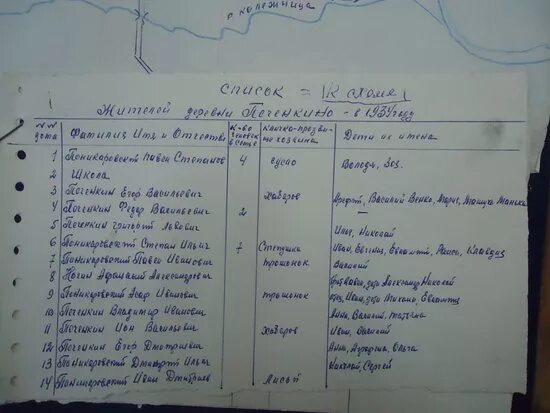 р. Колежница
СПИСОК = К схеме
Жителей деревни Печенкино - в 1934 году
№№ дома Фамилия Имя и Отчество К-во человек в семье Кличко-прозвище хозяина Дети их имена
1 Поникаровский Павел Степанов 4 Володя, Зоя.
2 Школа
3 Печенкин Егор Васильевич Хаваров Василий
4 Печенкин Федор Васильевич 2
5 Печенкин Григорий Львович Илья, Николай
6 Поникаровский Степан Ильич 7 Степушка Иван, Евгения, Раиса, Клавдия
7 Поникаровский Павел Иванович трошонок Василий
8 Александрович Александр Николай
9 Поникаровский Иванович трошонок Иван
10 Печенкин Владимир Иванович Анна, Василий, Татьяна
11 Печенкин Ион Васильевич Хаваров Иван, Василий
12 Печенкин Егор Дмитриевич Анна, Ольга
13 Поникаровский Дмитрий Ильич Николай, Сергей
14 Поникаровский Иван Дмитриев